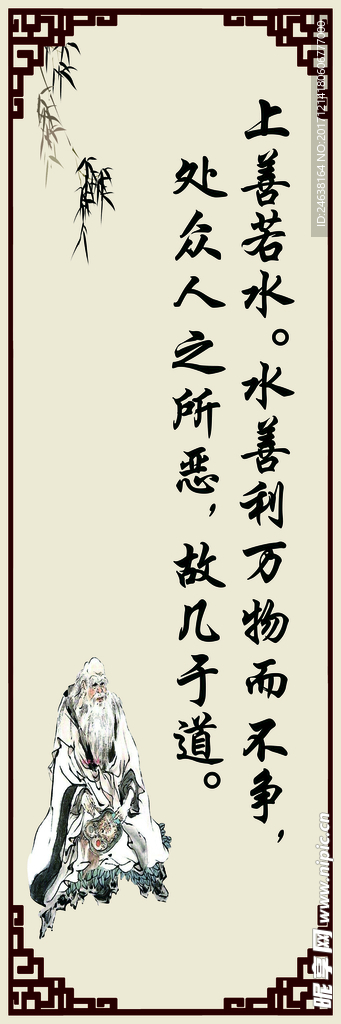 上善若水。水善利万物而不争，
处众人之所恶，故几于道。
ID:24638164 NO:20171214180606777000
昵享网 www.nipic.cn